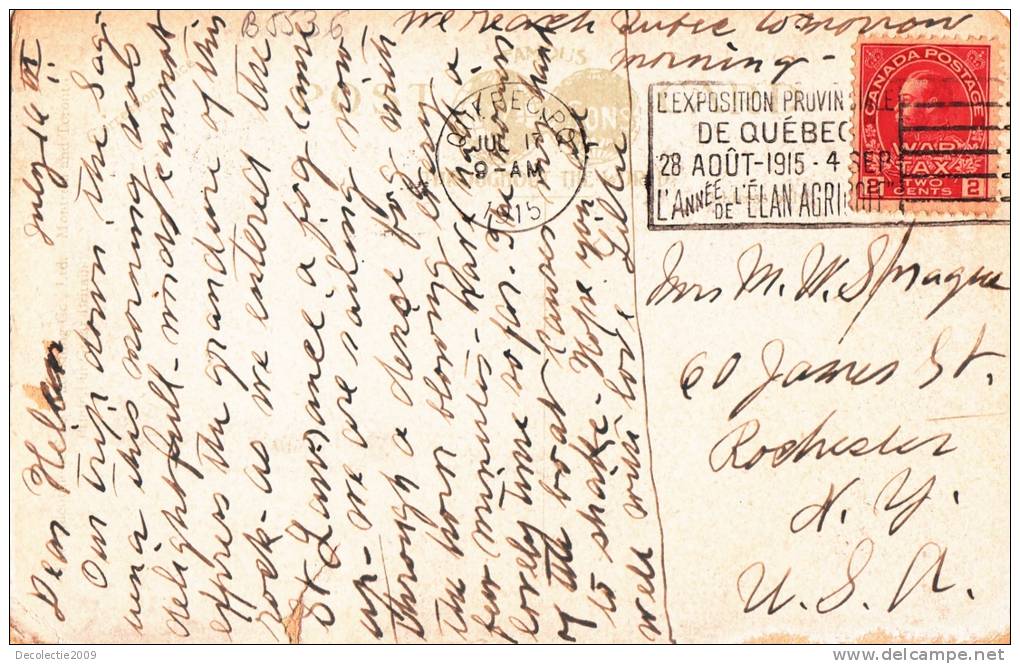 B5536
We reach Quebec tomorrow
morning -
July 16
Dear Helen
Our trip down the Sag-
uenia this morning was
delightful - words cannot
express the grandure of this
rock - as we entered the
St Lawrence a fog came
up - we are sailing now
through a dense fog with
the horn blowing every
few minutes - Have had a
lovely time so far. The motion
of the boat causes my hand
to shake - Hope you are
well with love, Lillie
QUEBEC P.Q.
JUL 17
9-AM
1915
L'EXPOSITION PROVINCIALE
DE QUÉBEC
28 AOÛT-1915-4 SEP
L'ANNÉE DE "L'ÉLAN AGRICOLE"
CANADA POSTAGE
WAR
TAX
2 TWO CENTS 2
Mrs M. W. Sprague
60 James St.
Rochester
N. Y.
U. S. A.
FAMOUS
POST
& SONS
THROUGHOUT THE WORLD
Decolectie2009
www.delcampe.net